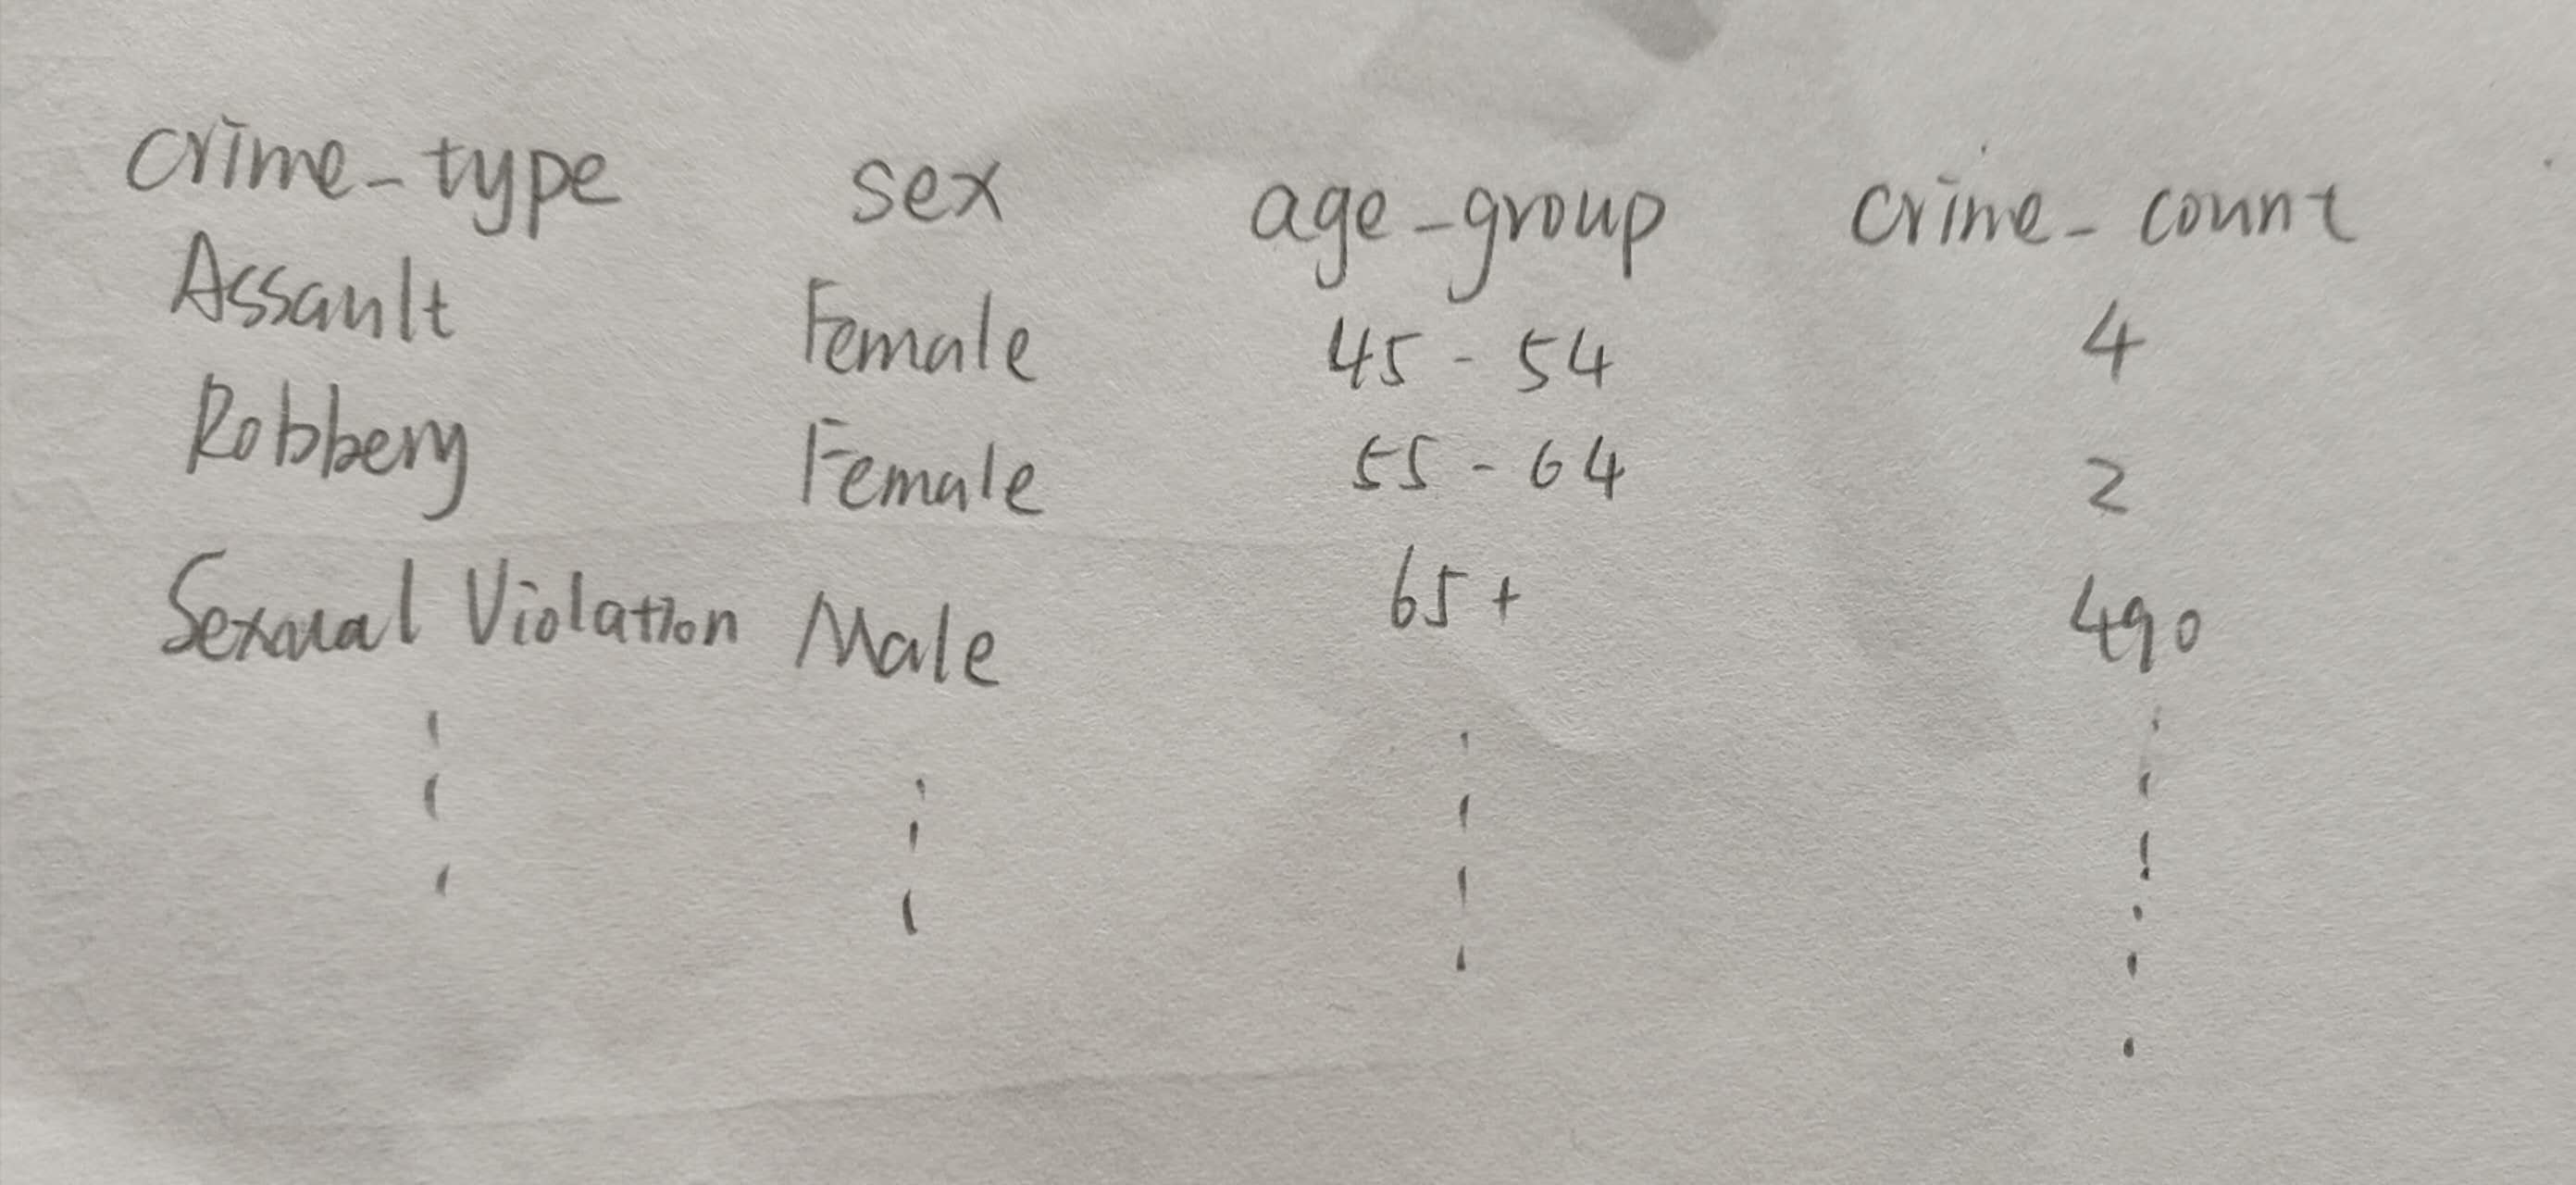 crime_type sex age_group crime_count
Assault Female 45-54 4
Robbery Female 55-64 2
Sexual Violation Male 65+ 490